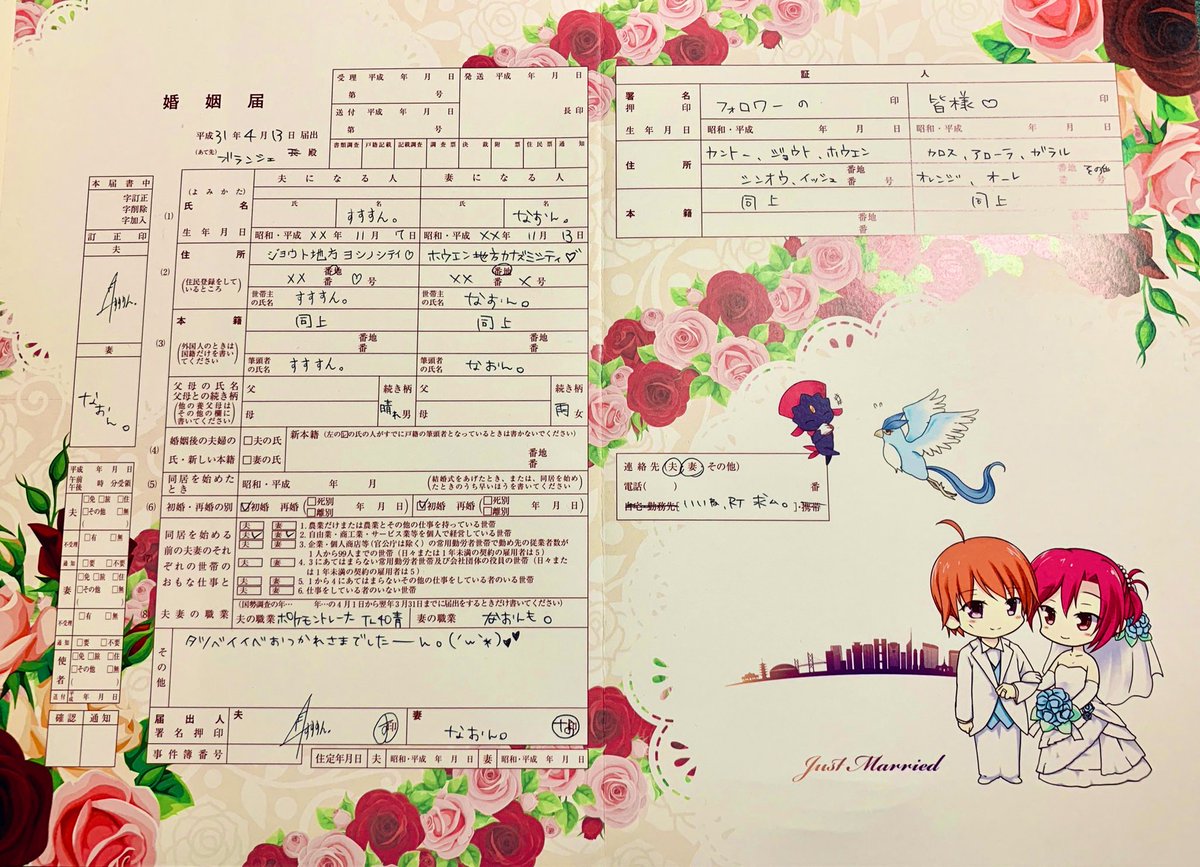 婚姻届
平成31年4月13日届出
(あて先)
ブランシェ 殿
受理 平成 年 月 日
第 号
送付 平成 年 月 日
第 号
発送 平成 年 月 日
長印
書類調査 戸籍記載 記載調査 調査票 決裁 附票 住民票 通知
本届書中
字訂正
字削除
字加入
訂正印
夫
すすん。
妻
なおん。
夫になる人 妻になる人
(よみかた)
氏 名 氏 名
(1) 氏名 すすすん。 なおん。
生年月日 昭和・平成 XX年 11月 7日 昭和・平成 XX年 11月 13日
(2) 住所 ジョウト地方ヨシノシティ♡ ホウエン地方カナズミシティ♡
(住民登録をしているところ)
XX 番地 番 ♡ 号 XX 番地 番 X 号
世帯主の氏名 すすすん。 世帯主の氏名 なおん。
(3) 本籍 同上 同上
番地 番 番地 番
(外国人のときは国籍だけを書いてください)
筆頭者の氏名 すすすん。 筆頭者の氏名 なおん。
父母の氏名
父母との続き柄
(他の養父母はその他の欄に書いてください)
父 続き柄 父 続き柄
母 晴れ男 母 雨女
(4) 婚姻後の夫婦の氏・新しい本籍
□夫の氏
□妻の氏
新本籍 (左の☑の氏の人がすでに戸籍の筆頭者となっているときは書かないでください)
番地
番
(5) 同居を始めたとき 昭和・平成 年 月
(結婚式をあげたとき、または、同居を始めたときのうち早いほうを書いてください)
(6) 初婚・再婚の別 ☑初婚 再婚 (□死別 □離別 年 月 日) ☑初婚 再婚 (□死別 □離別 年 月 日)
同居を始める前の夫妻のそれぞれの世帯のおもな仕事と
夫 妻 1.農業だけまたは農業とその他の仕事を持っている世帯
夫 妻 2.自由業・商工業・サービス業等を個人で経営している世帯
夫 妻 3.企業・個人商店等(官公庁は除く)の常用勤労者世帯で勤め先の従業者数が1人から99人までの世帯(日々または1年未満の契約の雇用者は5)
夫 妻 4.3にあてはまらない常用勤労者世帯及び会社団体の役員の世帯(日々または1年未満の契約の雇用者は5)
夫 妻 5.1から4にあてはまらないその他の仕事をしている者のいる世帯
夫 妻 6.仕事をしている者のいない世帯
(国勢調査の年… 年…の4月1日から翌年3月31日までに届出をするときだけ書いてください)
(8) 夫妻の職業 夫の職業 ポケモントレーナー TL40青 妻の職業 なおんも。
その他
タツベイイベおつかれさまでしたーん。(´ω`*)♥♥
届出人署名押印 夫 すすん。 す印 妻 なおん。 な印
事件簿番号
住定年月日 夫 昭和・平成 年 月 日 妻 昭和・平成 年 月 日
平成 年 月 日
午前 午後 時 分受領
夫 □免 □旅 □住
□その他 □無
( )
不受理 □有 □無
通知 □要 □不要
妻 □免 □旅 □住
□その他 □無
( )
不受理 □有 □無
通知 □要 □不要
使者 □免 □旅 □住
□その他 □無
( )
送付 平成 年 月 日
確認 通知
証人
署名押印 フォロワーの 印 皆様♡ 印
生年月日 昭和・平成 年 月 日 昭和・平成 年 月 日
住所 カントー、ジョウト、ホウエン カロス、アローラ、ガラル
シンオウ、イッシュ 番地 番 号 オレンジ、オーレ 番地 番 その他 号
本籍 同上 同上
番地
番
連絡先(夫・妻・その他)
電話( ) 番
自宅・勤務先[いいね、RT ボム。]・携帯
Just Married